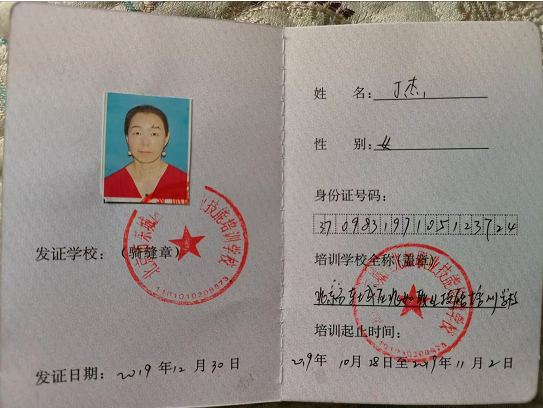 发证学校：（骑缝章）
1101010208873
发证日期：2019年12月30日
姓 名：丁杰
性 别：女
身份证号码：
370983197105123724
培训学校全称（盖章）
北京市东城区 职业技能培训学校
培训起止时间：
2019年10月28日至2019年11月2日